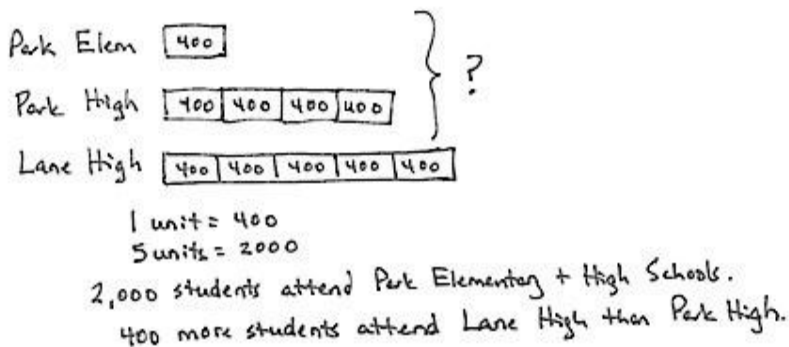 Park Elem 400
Park High 400 400 400 400
?
Lane High 400 400 400 400 400
1 unit = 400
5 units = 2000
2,000 students attend Park Elementary + High Schools.
400 more students attend Lane High than Park High.